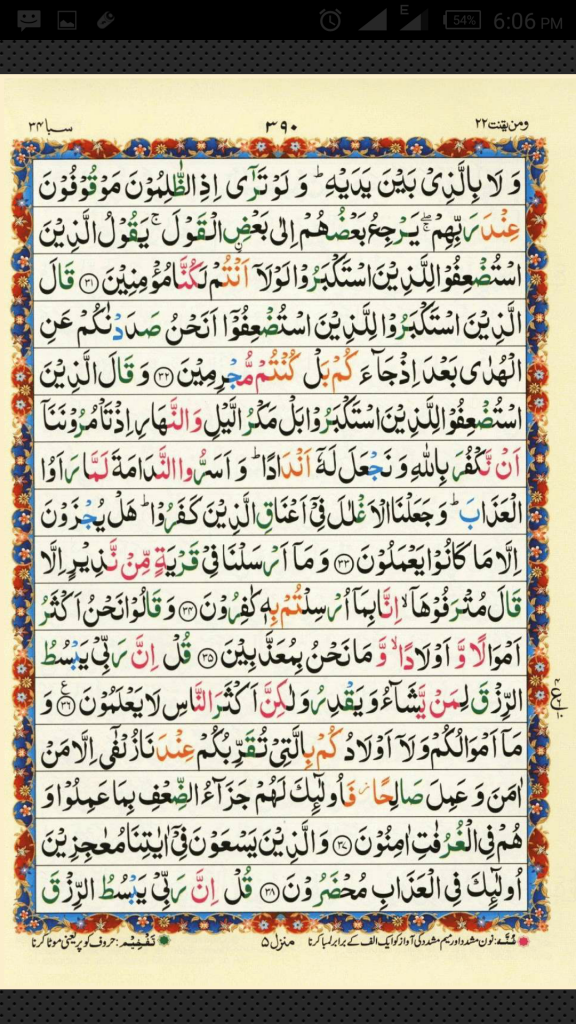 E 54% 6:06 PM
ومن يقنت ٢٢ ٣٩٠ سبا ٣٤
وَ لَا بِالَّذِىْ بَيْنَ يَدَيْهِ ؕ وَ لَوْ تَرٰٓى اِذِ الظّٰلِمُوْنَ مَوْقُوْفُوْنَ
عِنْدَ رَبِّهِمْ ۖۚ يَرْجِعُ بَعْضُهُمْ اِلٰى بَعْضِ اۨلْقَوْلَ ۚ يَقُوْلُ الَّذِيْنَ
اسْتُضْعِفُوْا لِلَّذِيْنَ اسْتَكْبَرُوْا لَوْلَاۤ اَنْتُمْ لَكُنَّا مُؤْمِنِيْنَ ﴿۳۱﴾ قَالَ
الَّذِيْنَ اسْتَكْبَرُوْا لِلَّذِيْنَ اسْتُضْعِفُوْۤا اَنَحْنُ صَدَدْنٰكُمْ عَنِ
الْهُدٰى بَعْدَ اِذْ جَآءَكُمْ بَلْ كُنْتُمْ مُّجْرِمِيْنَ ﴿۳۲﴾ وَ قَالَ الَّذِيْنَ
اسْتُضْعِفُوْا لِلَّذِيْنَ اسْتَكْبَرُوْا بَلْ مَكْرُ الَّيْلِ وَ النَّهَارِ اِذْ تَاْمُرُوْنَنَاۤ
اَنْ نَّكْفُرَ بِاللّٰهِ وَ نَجْعَلَ لَهٗۤ اَنْدَادًا ؕ وَ اَسَرُّوا النَّدَامَةَ لَمَّا رَاَوُا
الْعَذَابَ ؕ وَ جَعَلْنَا الْاَغْلٰلَ فِىْۤ اَعْنَاقِ الَّذِيْنَ كَفَرُوْا ؕ هَلْ يُجْزَوْنَ
اِلَّا مَا كَانُوْا يَعْمَلُوْنَ ﴿۳۳﴾ وَ مَاۤ اَرْسَلْنَا فِىْ قَرْيَةٍ مِّنْ نَّذِيْرٍ اِلَّا
قَالَ مُتْرَفُوْهَاۤ ۙ اِنَّا بِمَاۤ اُرْسِلْتُمْ بِهٖ كٰفِرُوْنَ ﴿۳۴﴾ وَ قَالُوْا نَحْنُ اَكْثَرُ
اَمْوَالًا وَّ اَوْلَادًا ۙ وَّ مَا نَحْنُ بِمُعَذَّبِيْنَ ﴿۳۵﴾ قُلْ اِنَّ رَبِّىْ يَبْسُطُ
الرِّزْقَ لِمَنْ يَّشَآءُ وَ يَقْدِرُ وَ لٰكِنَّ اَكْثَرَ النَّاسِ لَا يَعْلَمُوْنَ ﴿۳۶﴾ وَ
مَاۤ اَمْوَالُكُمْ وَ لَاۤ اَوْلَادُكُمْ بِالَّتِىْ تُقَرِّبُكُمْ عِنْدَنَا زُلْفٰٓى اِلَّا مَنْ
اٰمَنَ وَ عَمِلَ صَالِحًا ؗ فَاُولٰٓئِكَ لَهُمْ جَزَآءُ الضِّعْفِ بِمَا عَمِلُوْا وَ
هُمْ فِى الْغُرُفٰتِ اٰمِنُوْنَ ﴿۳۷﴾ وَ الَّذِيْنَ يَسْعَوْنَ فِىْۤ اٰيٰتِنَا مُعٰجِزِيْنَ
اُولٰٓئِكَ فِى الْعَذَابِ مُحْضَرُوْنَ ﴿۳۸﴾ قُلْ اِنَّ رَبِّىْ يَبْسُطُ الرِّزْقَ
غنّہ: نون مشدد اور میم مشدد کی آواز کو ایک الف کے برابر لمبا کرنا منزل ۵ تفخیم: حروف کو پُر یعنی موٹا کرنا